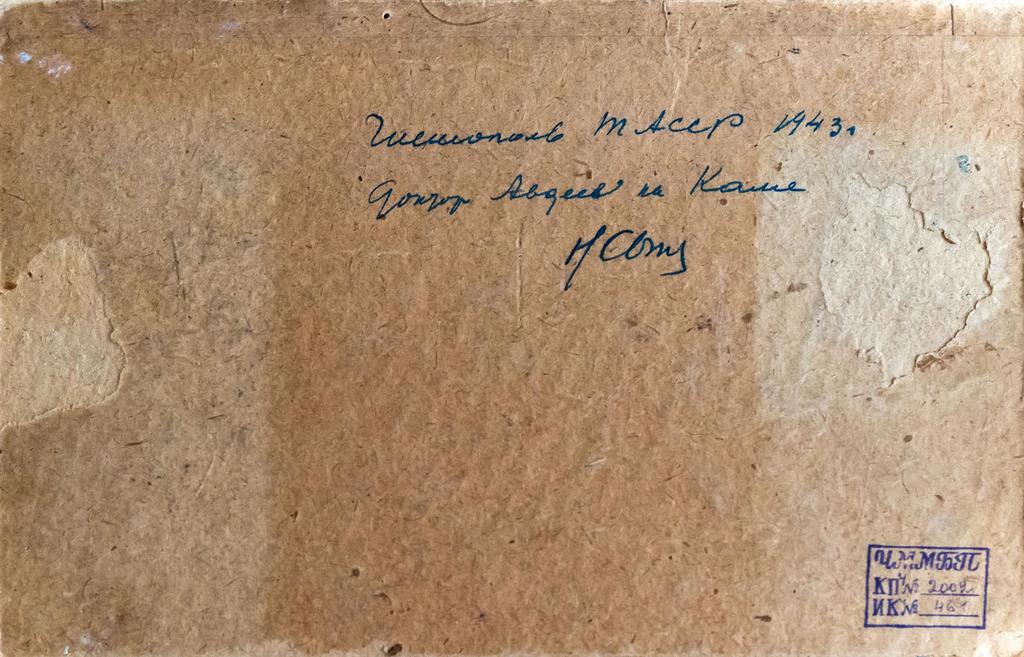 Чистополь ТАССР 1943г.
Доктор Авдеев на Каме
ЧММБП
КП № 2002
ИК № 461